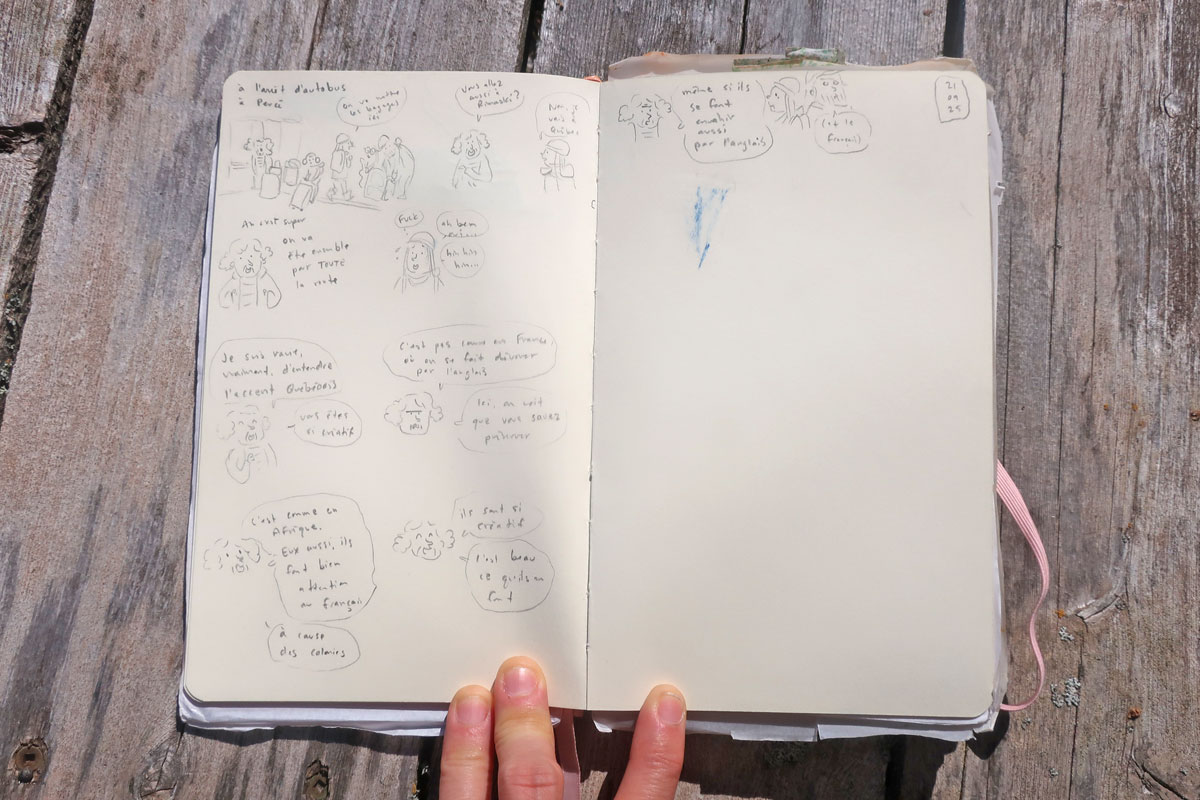 à l'arrêt d'autobus
à Percé
on va mettre
les bagages
ici
Vous allez
aussi à
Rimouski?
Non, je
vais à
Québec
Ah c'est super
on va
être ensemble
par TOUTE
la route
Fuck
ah ben
hin hin
hin...
Je suis ravie,
vraiment, d'entendre
l'accent Québécois
vous êtes
si créatifs
C'est pas comme en France,
où on se fait dévorer
par l'anglais
Ici, on voit
que vous savez
préserver
C'est comme en
Afrique.
Eux aussi, ils
font bien
attention
au français
à cause
des colonies
ils sont si
créatifs
c'est beau
ce qu'ils en
font
même si ils
se font
envahir
aussi
par l'anglais
(et le
français)
21
09
25